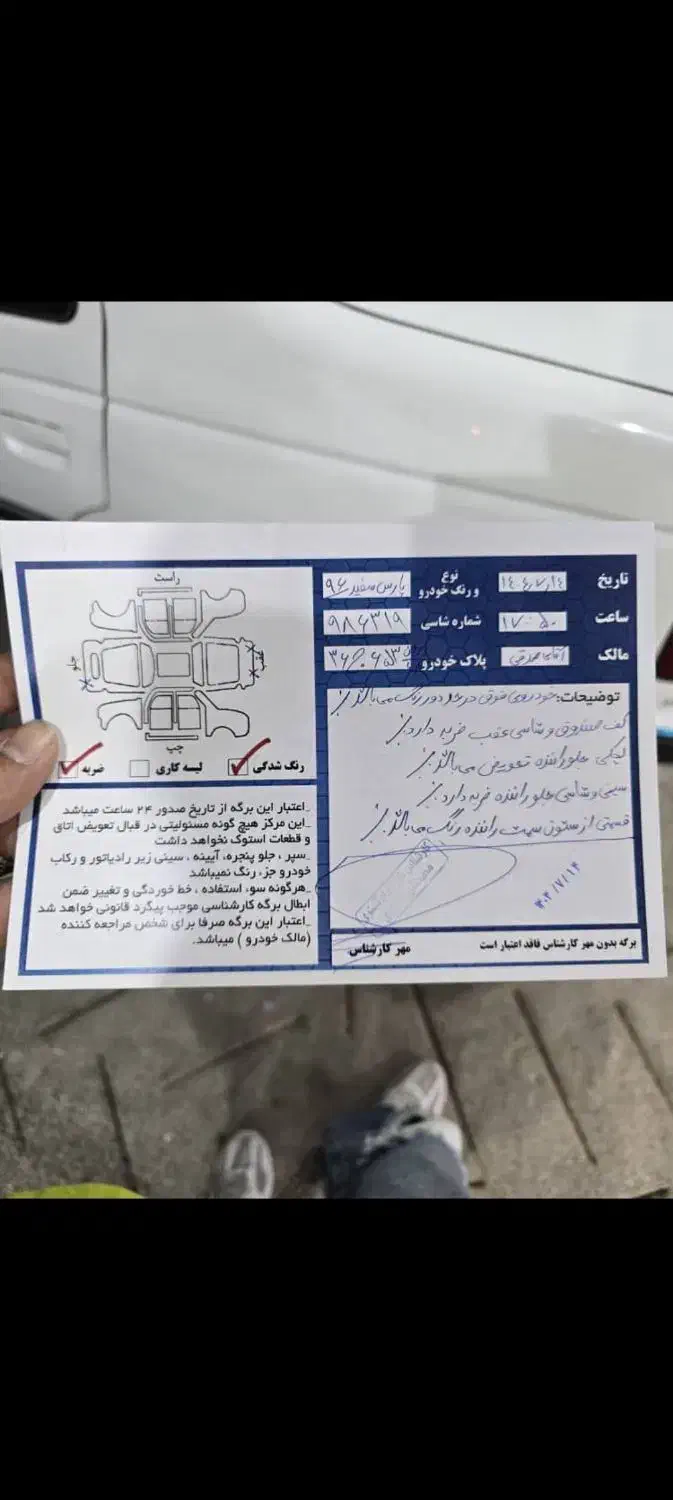 تاریخ ۱۴۰۴/۷/۱۴
نوع و رنگ خودرو پارس سفید ۹۶
ساعت ۱۷:۵۰
شماره شاسی ۹۸۶۳۱۹
مالک
پلاک خودرو
توضیحات: خودروی فوق در حد دور رنگ می باشد.
کف صندوق و شاسی عقب ضربه دارد.
لچکی جلو راننده تعویض می باشد.
سینی و شاسی جلو راننده ضربه دارد.
قسمتی از ستون سمت راننده رنگ می باشد.
۴۰۴/۷/۱۴
برگه بدون مهر کارشناس فاقد اعتبار است
مهر کارشناس
راست
جلو
عقب
چپ
رنگ شدگی
لیسه کاری
ضربه
_اعتبار این برگه از تاریخ صدور ۲۴ ساعت میباشد
_این مرکز هیچ گونه مسئولیتی در قبال تعویض اتاق
و قطعات استوک نخواهد داشت
_سپر ، جلو پنجره، آیینه ، سینی زیر رادیاتور و رکاب
خودرو جزء رنگ نمیباشد
_هرگونه سوء استفاده ، خط خوردگی و تغییر ضمن
ابطال برگه کارشناسی موجب پیگرد قانونی خواهد شد
_اعتبار این برگه صرفا برای شخص مراجعه کننده
(مالک خودرو ) میباشد.